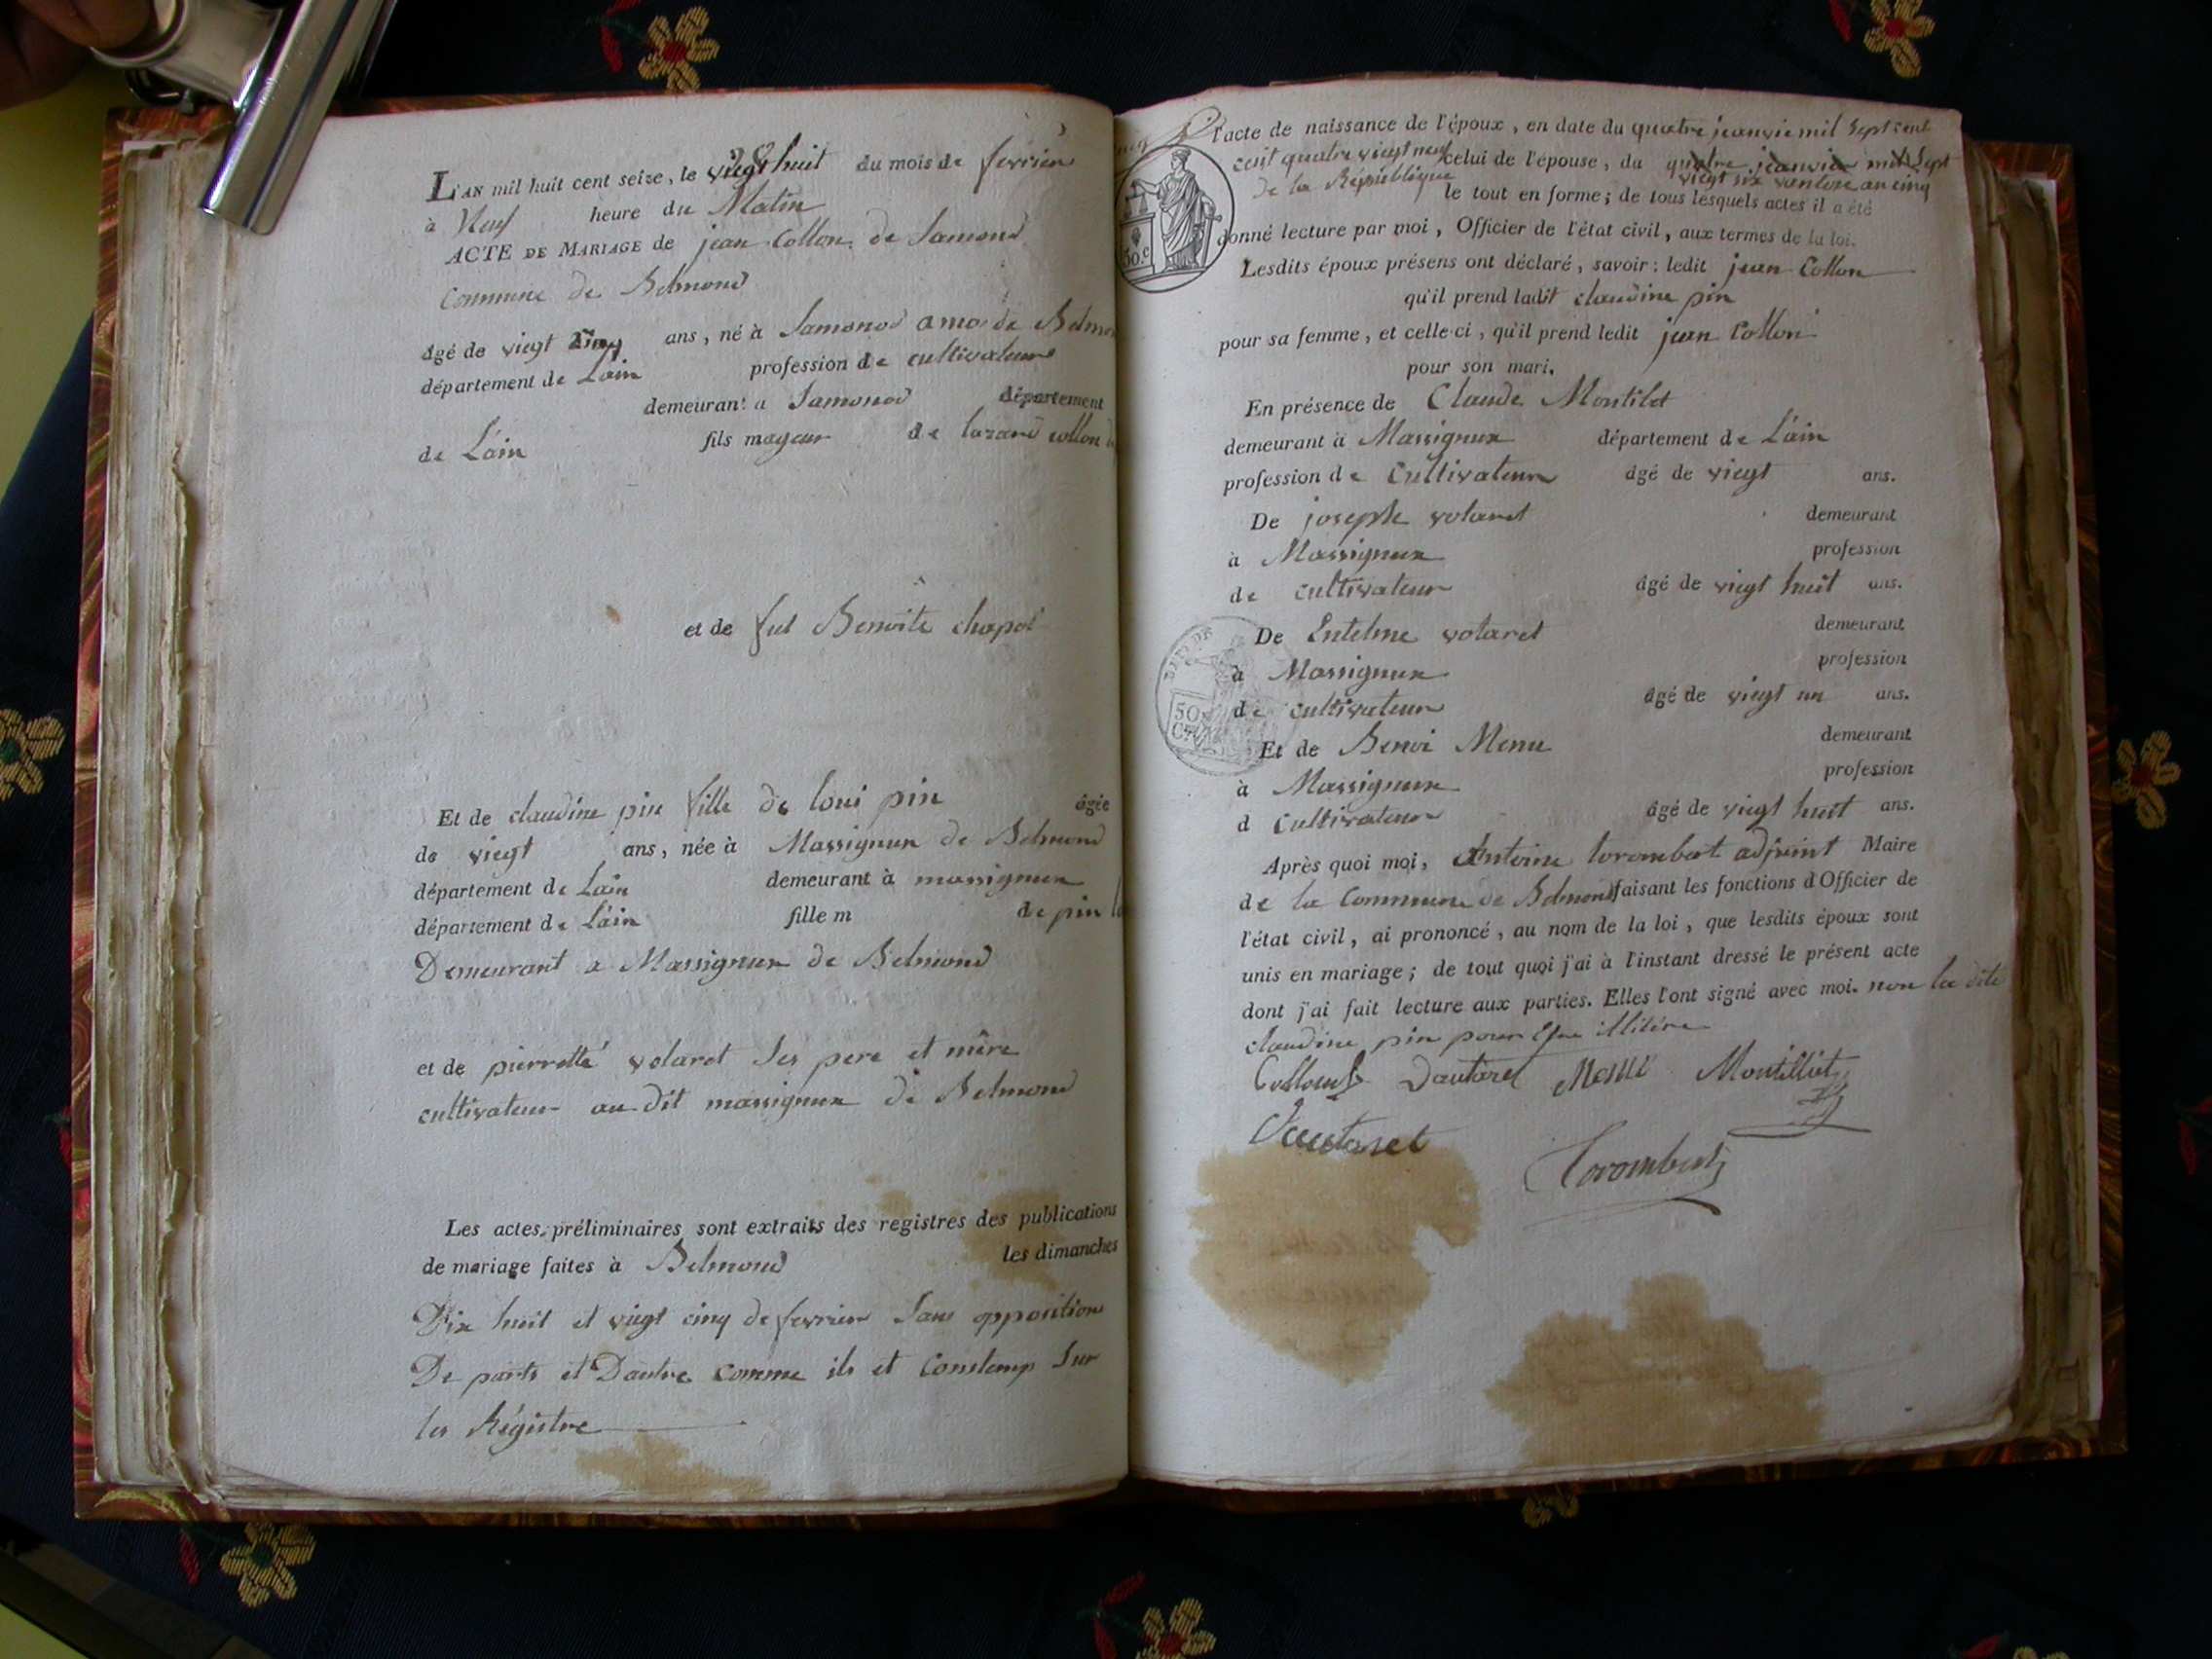 28
L'AN mil huit cent seize, le viegt huit du mois de fevrier
à Neuf heure du Matin
ACTE DE MARIAGE de jean Collon de Samonod
Commune de Belmond
âgé de viegt cinq ans, né à Samonod de Belmon
département de Lain profession de cultivateur
demeurant a Samonod département
de L'ain fils mageur de lazard collon
et de fut Benoite chapot
Et de claudine pin fille de loui pin âgée
de viegt ans, née à Massignux de Belmond
département de Lain demeurant à massignux
département de L'ain fille m de pin
Demeurant a Massignux de Belmond
et de pierrotte volaret Ses pere et mêre
cultivateur au dit massignux de Belmond
Les actes préliminaires sont extraits des registres des publications
de mariage faites à Belmond les dimanches
Dix huit et viegt cinq de fevrier Sans opposition
De parts et D'autre comme ils et Constemp Sur
les Régistre
l'acte de naissance de l'époux, en date du quatre jeanvie mil Sept cent
cent quatre viegt neuf celui de l'épouse, du quatre jeanvier mil Sept
viegt six vantose an cinq
de la République le tout en forme; de tous lesquels actes il a été
donné lecture par moi, Officier de l'état civil, aux termes de la loi.
30.c
Lesdits époux présens ont déclaré, savoir: ledit jean Collon
qu'il prend ladit claudine pin
pour sa femme, et celle-ci, qu'il prend ledit jean Collon
pour son mari.
En présence de Claude Montilet
demeurant à Massignux département de L'ain
profession de Cultivateur âgé de viegt ans.
De joseph volaret demeurant
à Massignux profession
de cultivateur âgé de viegt huit ans.
De Entelme volaret demeurant
à Massignux profession
de cultivateur âgé de viegt un ans.
50
Et de Benoi Menu demeurant
à Massignux profession
d Cultivateur âgé de viegt huit ans.
Après quoi moi, Antoine lorombert adjoint Maire
de la Commune de Belmond faisant les fonctions d'Officier de
l'état civil, ai prononcé, au nom de la loi, que lesdits époux sont
unis en mariage; de tout quoi j'ai à l'instant dressé le présent acte
dont j'ai fait lecture aux parties. Elles l'ont signé avec moi. non la dite
claudine pin pour Etre illitére
Collon Dautaret Menu Montilliet
Vautaret
Corombert